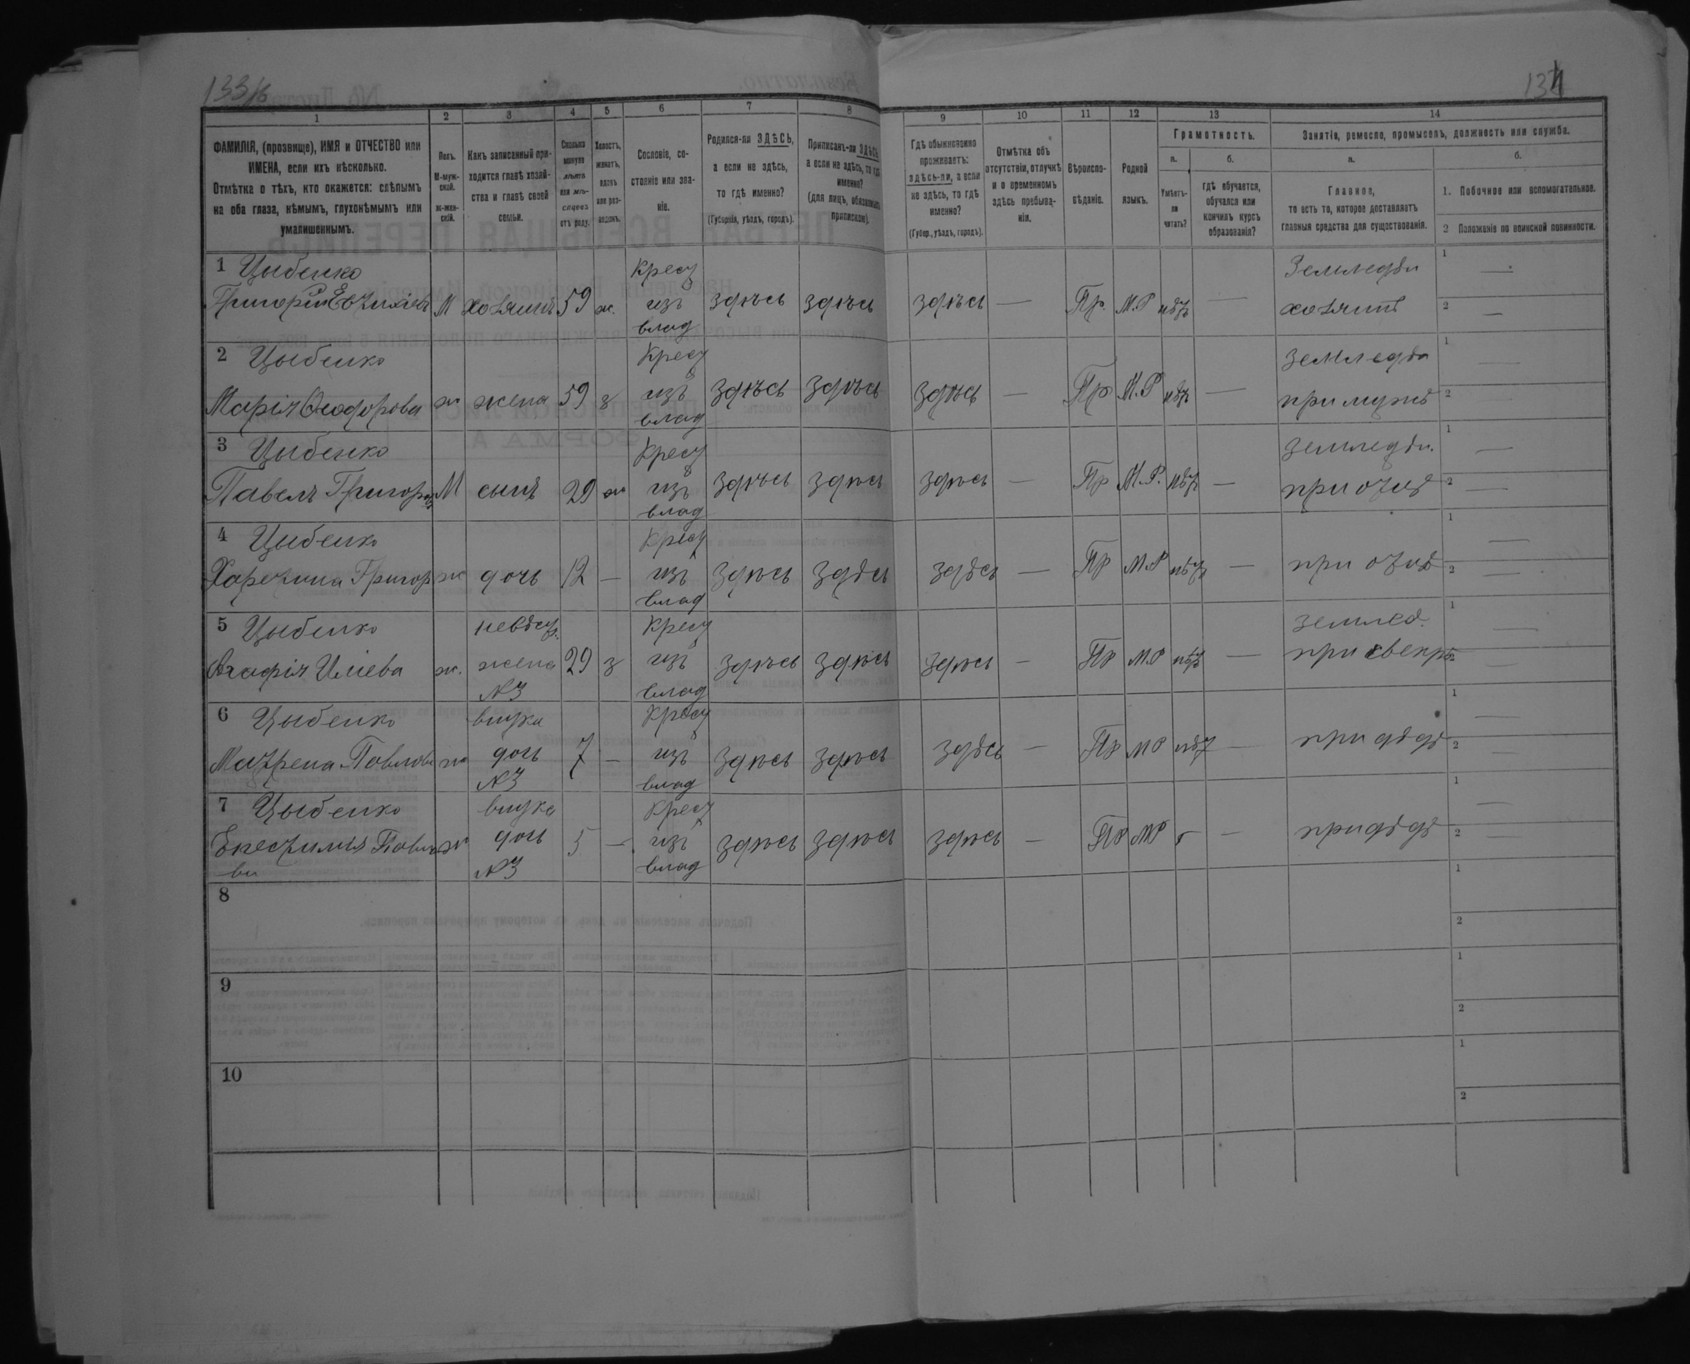 133/в
134
1
2
3
4
5
6
7
8
9
10
11
12
13
14
ФАМИЛІЯ, (прозвище), ИМЯ и ОТЧЕСТВО или
ИМЕНА, если ихъ нѣсколько.
Отмѣтка о тѣхъ, кто окажется: слѣпымъ
на оба глаза, нѣмымъ, глухонѣмымъ или
умалишеннымъ.
Полъ.
М-муж-
ской.
ж-жен-
скій.
Какъ записанный при-
ходится главѣ хозяй-
ства и главѣ своей
семьи.
Сколько
минуло
лѣтъ
или мѣ-
сяцевъ
отъ роду.
Холостъ,
женатъ,
вдовъ
или раз-
веденъ.
Сословіе, со-
стояніе или зва-
ніе.
Родился-ли ЗДѢСЬ,
а если не здѣсь,
то гдѣ именно?
(Губернія, уѣздъ, городъ).
Приписанъ-ли ЗДѢСЬ,
а если не здѣсь, то гдѣ
именно?
(для лицъ, обязанныхъ
припискою).
Гдѣ обыкновенно
проживаетъ:
здѣсь-ли, а если
не здѣсь, то гдѣ
именно?
(Губер., уѣздъ, городъ).
Отмѣтка объ
отсутствіи, отлучкѣ
и о временномъ
здѣсь пребыва-
ніи.
Вѣроиспо-
вѣданіе.
Родной
языкъ.
Грамотность.
а.
Умѣетъ-
ли
читать?
б.
гдѣ обучается,
обучался или
кончилъ курсъ
образованія?
Занятіе, ремесло, промыселъ, должность или служба.
а.
Главное,
то есть то, которое доставляетъ
главныя средства для существованія.
б.
1. Побочное или вспомогательное.
2 Положеніе по воинской повинности.
1 Цыбенко
Григорій Евтихіевъ М хозяинъ 59 ж. Крест изъ влад здѣсь здѣсь здѣсь — Пр. М.Р нѣтъ — Земледѣл хозяинъ
1 —
2 —
2 Цыбенко
Марія Ѳеодорова ж жена 59 з Крест изъ влад здѣсь здѣсь здѣсь — Пр М.Р нѣтъ — земледѣл при мужѣ
1 —
2 —
3 Цыбенко
Павелъ Григор М сынъ 29 ж Крест изъ влад здѣсь здѣсь здѣсь — Пр М.Р. нѣтъ — земледѣл. при отцѣ
1 —
2 —
4 Цыбенко
Харетина Григор ж дочь 12 — Крест изъ влад здѣсь здѣсь здѣсь — Пр М.Р нѣтъ — при отцѣ
1 —
2 —
5 Цыбенко
Агафія Иліева ж. невѣст. жена №3 29 з Крест изъ влад здѣсь здѣсь здѣсь — Пр М.Р нѣтъ — землед. при свекрѣ
1 —
2 —
6 Цыбенко
Матрена Павлова ж внука дочь №3 7 — Крест изъ влад здѣсь здѣсь здѣсь — Пр М Р нѣт — при дѣдѣ
1 —
2 —
7 Цыбенко
ж внука дочь №3 5 — Крест изъ влад здѣсь здѣсь здѣсь — Пр М Р — при дѣдѣ
1 —
2 —
8
1
2
9
1
2
10
1
2